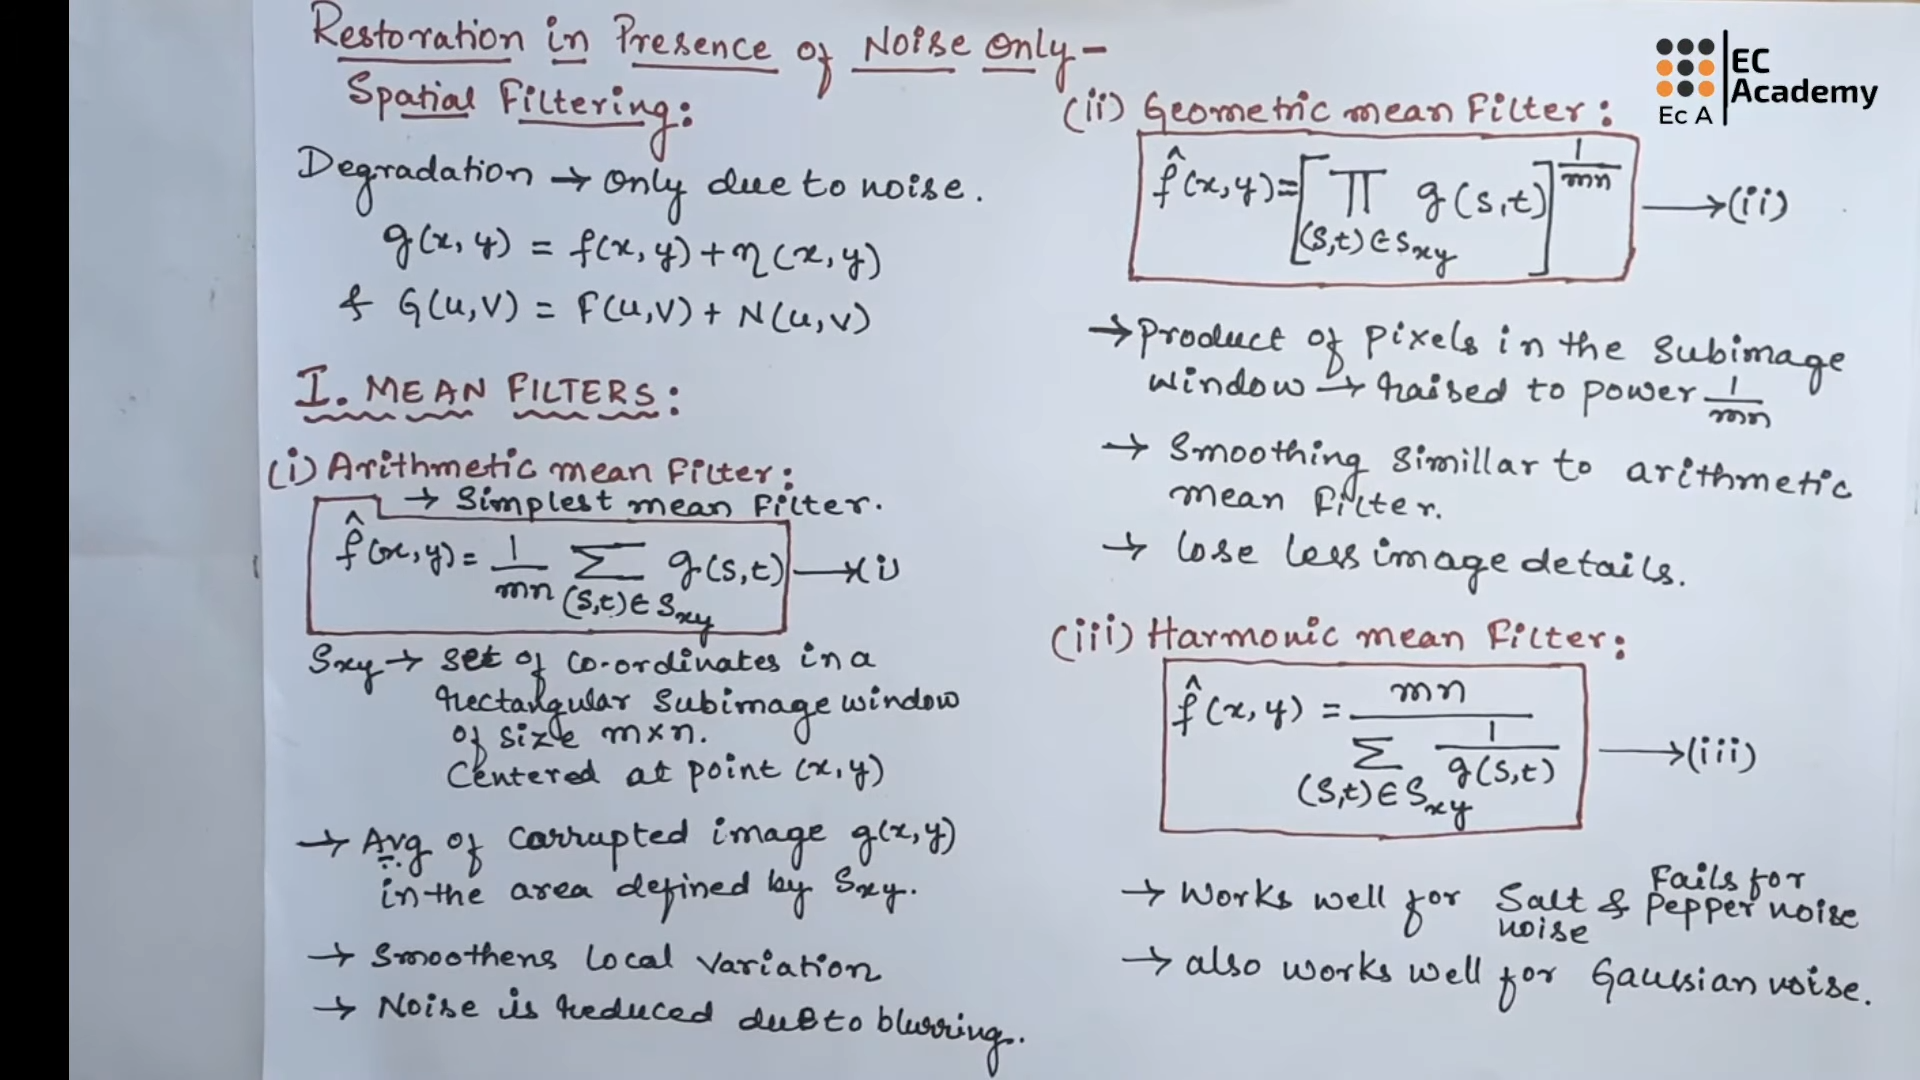 Restoration in Presence of Noise Only -
Spatial Filtering:
Degradation → only due to noise.
g(x,y) = f(x,y) + η(x,y)
& G(u,v) = F(u,v) + N(u,v)
I. MEAN FILTERS:
(i) Arithmetic mean Filter:
→ Simplest mean Filter.
f̂(x,y) = 1/mn Σ g(s,t) → (i)
(s,t)∈Sxy
Sxy → set of co-ordinates in a
rectangular Subimage window
of size m×n.
Centered at point (x,y)
→ Avg of Carrupted image g(x,y)
in the area defined by Sxy.
→ Smoothens Local Variation
→ Noise is reduced due to blurring.
EC
Academy
Ec A
(ii) Geometric mean Filter:
f̂(x,y) = [∏ g(s,t)]^1/mn → (ii)
(s,t)∈Sxy
→ Product of pixels in the Subimage
window → raised to power 1/mn
→ Smoothing Simillar to arithmetic
mean Filter.
→ lose less image details.
(iii) Harmonic mean Filter:
f̂(x,y) = mn / Σ 1/g(s,t) → (iii)
(s,t)∈Sxy
→ Works well for Salt noise & Fails for Pepper noise
→ also works well for Gaussian noise.